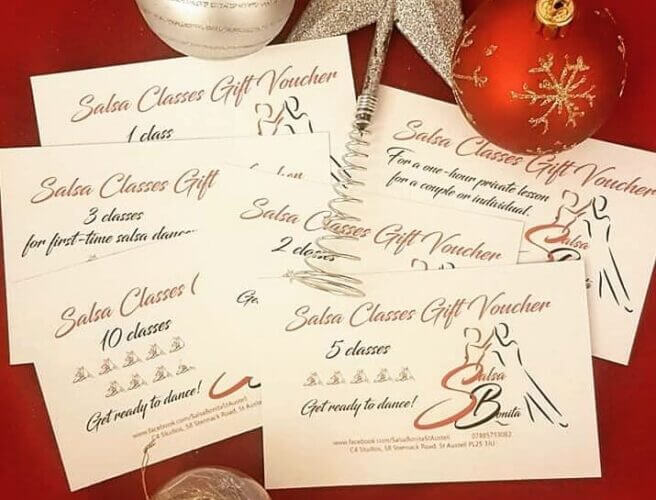 Salsa Classes Gift Voucher
1 class
Salsa Classes Gift Voucher
For a one-hour private lesson
for a couple or individual.
Salsa
Salsa Classes Gift
3 classes
for first-time salsa
Salsa Classes Gift Voucher
2
Salsa Classes
10 classes
Get ready to dance!
www.facebook.com/SalsaBonitaStAustell
C4 Studios, 58 Slennack Road, St Austell
Salsa Classes Gift Voucher
5 classes
Get ready to dance!
Salsa
Bonita
www.facebook.com/SalsaBonitaStAustell
C4 Studios, 58 Slennack Road, St Austell PL25